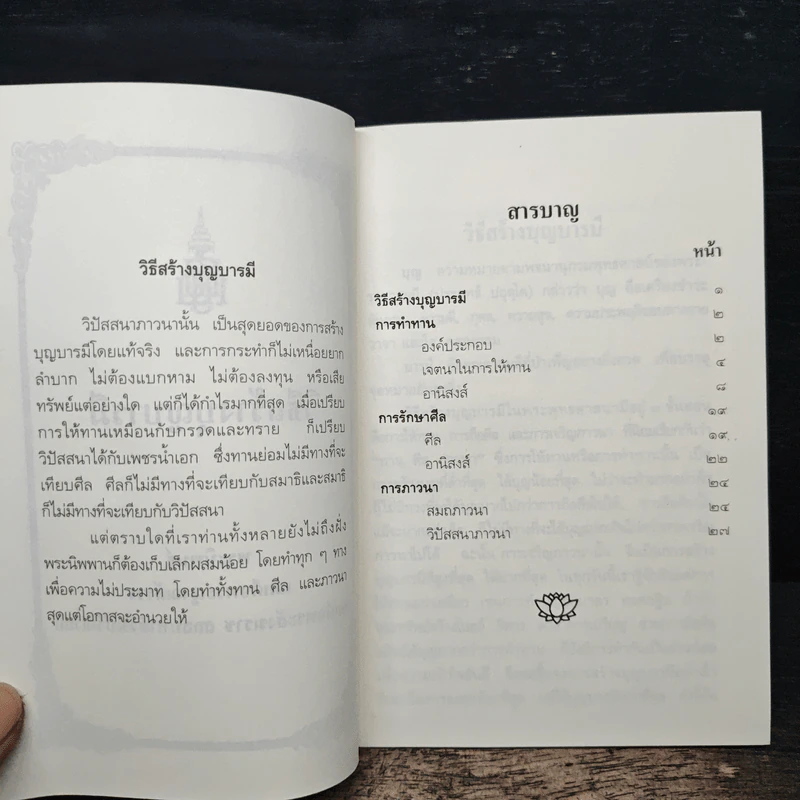 วิธีสร้างบุญบารมี
วิปัสสนาภาวนานั้น เป็นสุดยอดของการสร้าง
บุญบารมีโดยแท้จริง และการกระทำก็ไม่เหนื่อยยาก
ลำบาก ไม่ต้องแบกหาม ไม่ต้องลงทุน หรือเสีย
ทรัพย์แต่อย่างใด แต่ก็ได้กำไรมากที่สุด เมื่อเปรียบ
การให้ทานเหมือนกับกรวดและทราย ก็เปรียบ
วิปัสสนาได้กับเพชรน้ำเอก ซึ่งทานย่อมไม่มีทางที่จะ
เทียบศีล ศีลก็ไม่มีทางที่จะเทียบกับสมาธิและสมาธิ
ก็ไม่มีทางที่จะเทียบกับวิปัสสนา
แต่ตราบใดที่เราท่านทั้งหลายยังไม่ถึงฝั่ง
พระนิพพานก็ต้องเก็บเล็กผสมน้อย โดยทำทุก ๆ ทาง
เพื่อความไม่ประมาท โดยทำทั้งทาน ศีล และภาวนา
สุดแต่โอกาสจะอำนวยให้
สารบาญ
หน้า
วิธีสร้างบุญบารมี ๑
การทำทาน ๒
องค์ประกอบ ๒
เจตนาในการให้ทาน ๔
อานิสงส์ ๘
การรักษาศีล ๑๙
ศีล ๑๙
อานิสงส์ ๒๒
การภาวนา ๒๔
สมถภาวนา ๒๔
วิปัสสนาภาวนา ๒๗